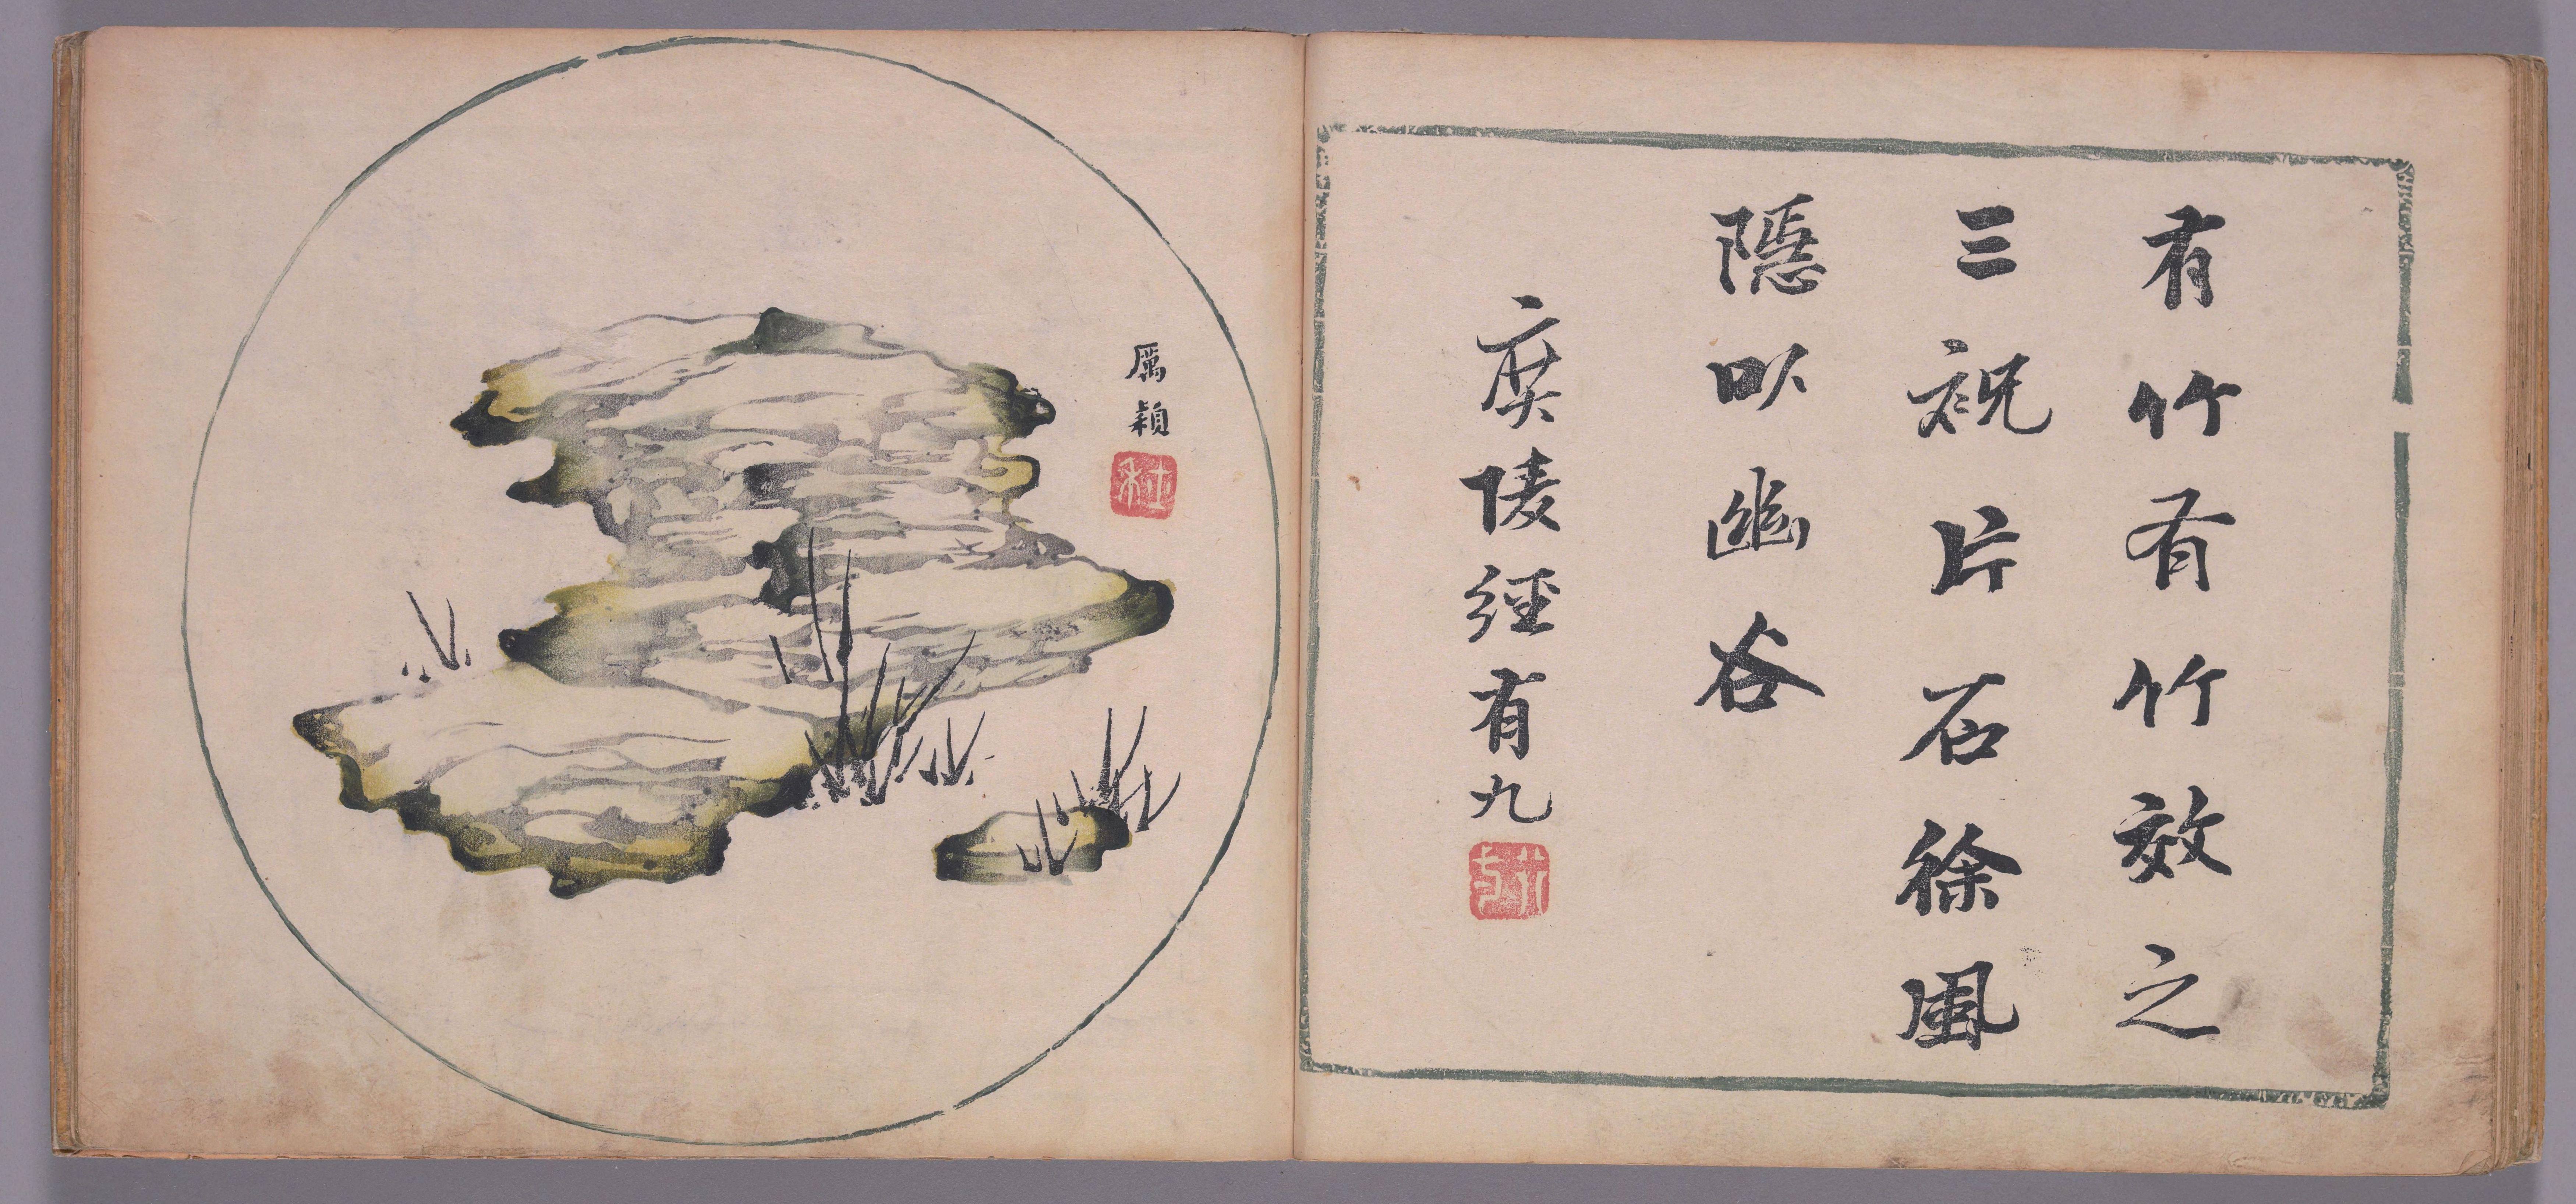 有竹有竹效之
三祝片石徐風
隱㕥幽谷
廣陵經有九
厲穎